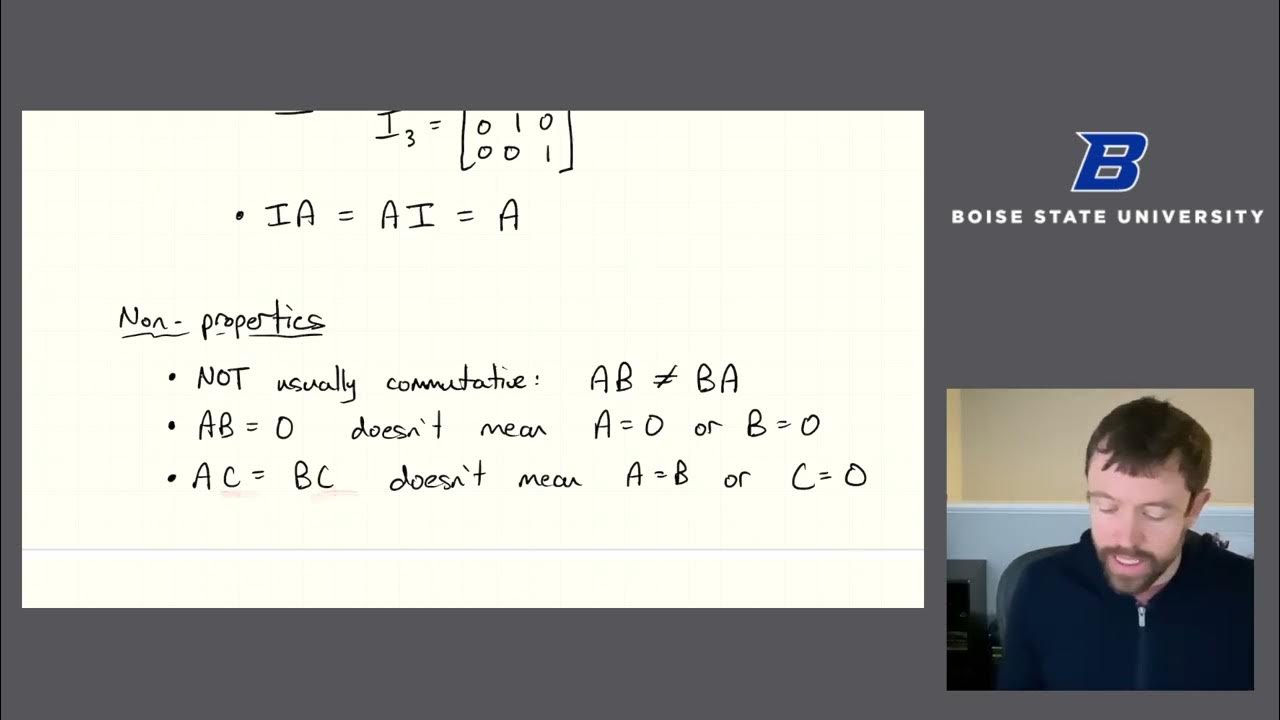 I₃ = [0 1 0
0 0 1]
• IA = AI = A
Non-properties
• NOT usually commutative: AB ≠ BA
• AB = 0 doesn't mean A = 0 or B = 0
• AC = BC doesn't mean A = B or C = 0
B
BOISE STATE UNIVERSITY